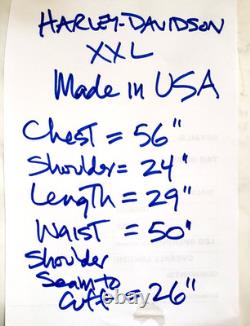 HARLEY-DAVIDSON
XXL
Made in USA
Chest = 56"
Shoulder = 24"
Length = 29"
WAIST = 50"
Shoulder
Seam to
Cuff = 26"